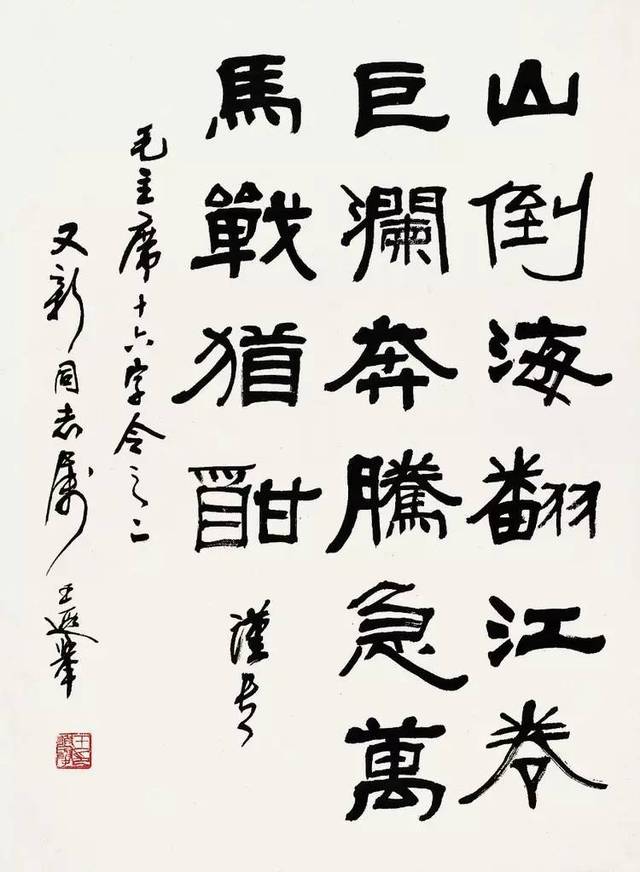 山倒海翻江卷
巨瀾奔騰急萬
馬戰猶酣
謹書
毛主席十六字令之二
又新同志屬
王遐舉